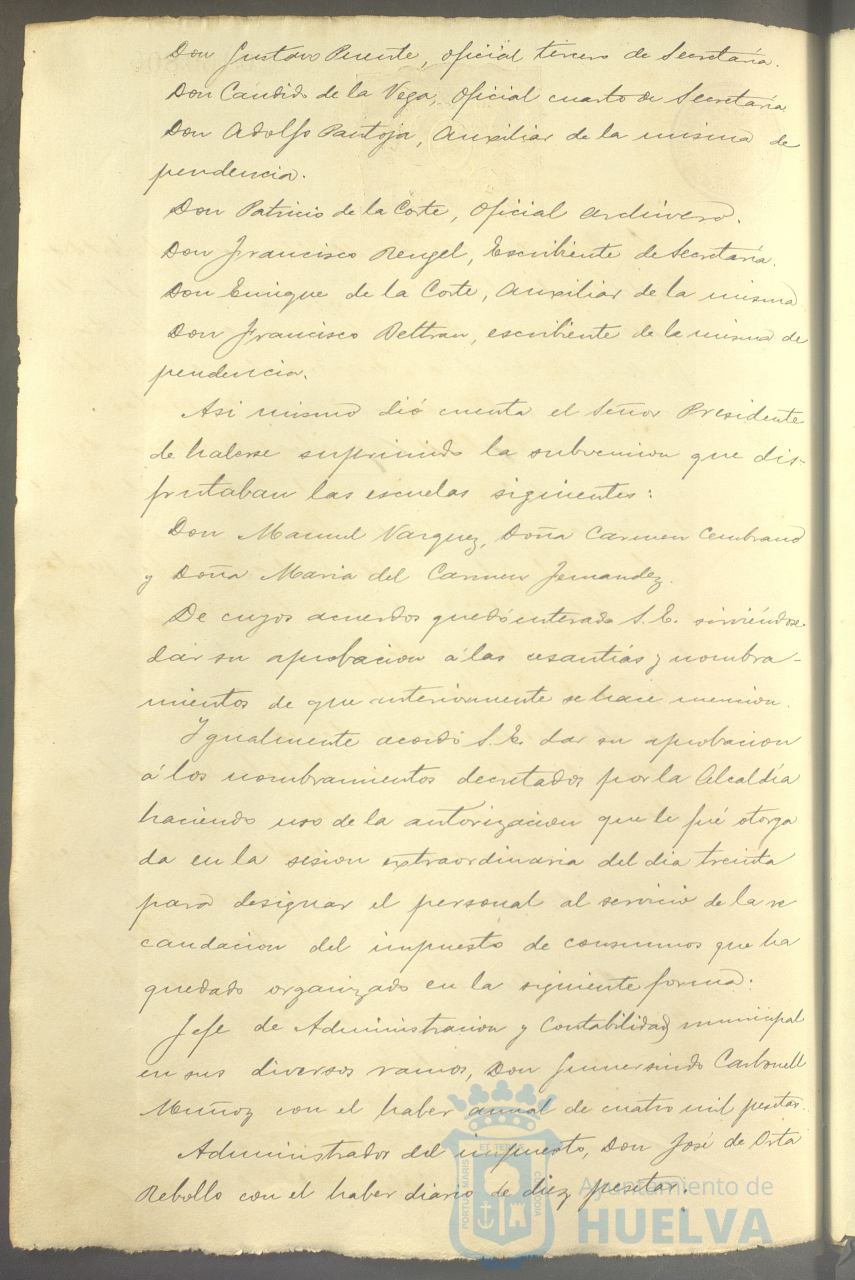 Don Gustavo Puente, oficial tercero de Secretaría.
Don Candido de la Vega, Oficial cuarto de Secretaría
Don Adolfo Pantoja, Auxiliar de la misma de
pendencia.
Don Patricio de la Corte, Oficial archivero.
Don Francisco Rengel, Escribiente de Secretaría.
Don Enrique de la Corte, Auxiliar de la misma
Don Francisco Beltran, escribiente de la misma de
pendencia.
Asi mismo dió cuenta el Señor Presidente
de haberse suprimido la subvencion que dis-
frutaban las escuelas siguientes:
Don Manuel Vazquez, Doña Carmen Cembrano
y Doña Maria del Carmen Fernandez.
De cuyos acuerdos quedó enterado S. E. sirviéndose
dar su aprobacion á las cesantías y nombra-
mientos de que anteriormente se hace mencion.
Igualmente acordó S. E. dar su aprobacion
á los nombramientos decretados por la Alcaldía
haciendo uso de la autorizacion que le fué otorga
da en la sesion extraordinaria del dia treinta
para designar el personal al servicio de la re
caudacion del impuesto de consumos que ha
quedado organizado en la siguiente forma:
Jefe de Administracion y Contabilidad municipal
en sus diversos ramos, Don Gumersindo Carbonell
Muñoz con el haber anual de cuatro mil pesetas.
Administrador del impuesto, Don José de Orta
Rebollo con el haber diario de diez pesetas.
PORTUS MARIS ET TERRAE CUSTODIA
Ayuntamiento de
HUELVA